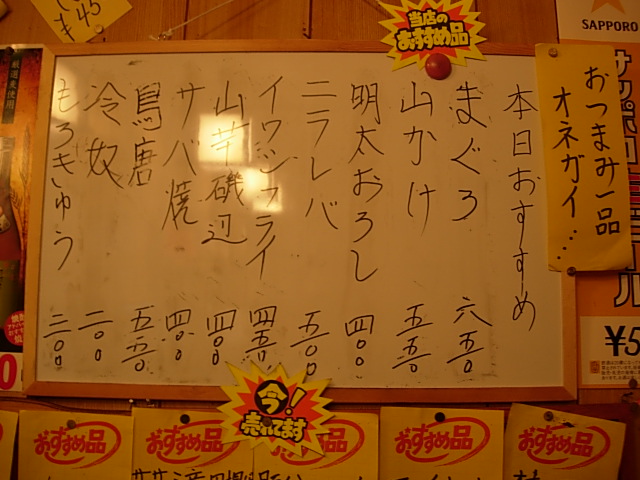 当店の
おすすめ品
SAPPORO
¥45
厳選素使用
おつまみ一品
オネガイ…
本日おすすめ
まぐろ 六五〇
山かけ 五五〇
明太おろし 四〇〇
ニラレバ 五〇〇
イワシフライ 四五〇
山芋磯辺 四〇〇
サバ焼 四〇〇
鳥唐 五五〇
冷奴 二〇〇
もろきゅう 三〇〇
¥5
今!
売れてます
おすすめ品
おすすめ品
おすすめ品
おすすめ品
おすすめ品